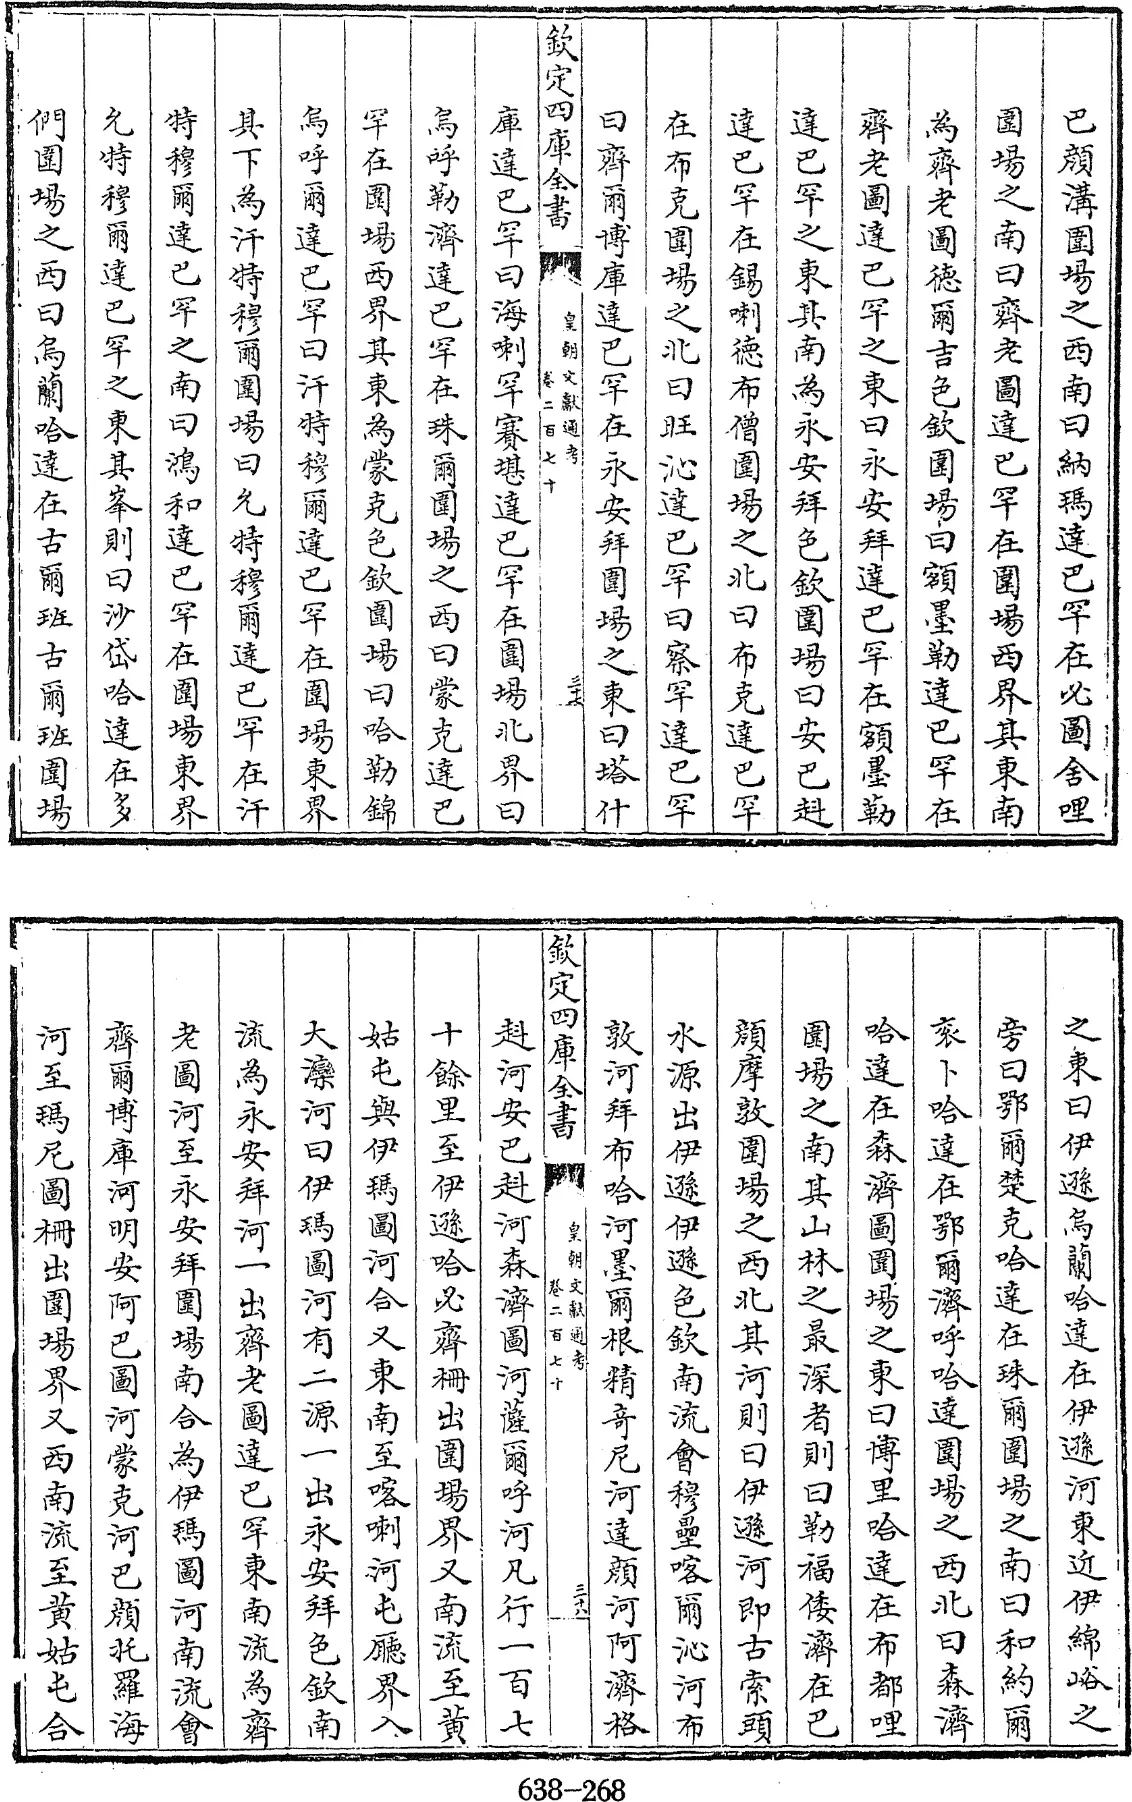 巴顔溝圍場之西南曰納瑪達巴罕在必圖舍哩
圍場之南曰齊老圖達巴罕在圍場西界其東南
為齊老圖徳爾吉色欽圍場曰額墨勒達巴罕在
齊老圖達巴罕之東曰永安拜達巴罕在額墨勒
達巴罕之東其南為永安拜色欽圍場曰安巴㪷
達巴罕在錫喇徳布僧圍場之北曰布克達巴罕
在布克圍場之北曰旺沁達巴罕曰察罕達巴罕
曰齊爾博庫達巴罕在永安拜圍場之東曰塔什
欽定四庫全書
皇朝文獻通考
卷二百七十
三十七
庫達巴罕曰海喇罕賽堪達巴罕在圍場北界曰
烏呼勒濟達巴罕在珠爾圍場之西曰蒙克達巴
罕在圍場西界其東為蒙克色欽圍場曰哈勒錦
烏呼爾達巴罕曰汗特穆爾達巴罕在圍場東界
其下為汗特穆爾圍場曰允特穆爾達巴罕在汗
特穆爾達巴罕之南曰鴻和達巴罕在圍場東界
允特穆爾達巴罕之東其峯則曰沙岱哈達在多
們圍場之西曰烏蘭哈達在古爾班古爾班圍場
之東曰伊遜烏蘭哈達在伊遜河東近伊綿峪之
旁曰鄂爾楚克哈達在珠爾圍場之南曰和約爾
衮卜哈達在鄂爾濟呼哈達圍場之西北曰森濟
哈達在森濟圖圍場之東曰博里哈達在布都哩
圍場之南其山林之最深者則曰勒福倭濟在巴
顔摩敦圍場之西北其河則曰伊遜河即古索頭
水源出伊遜伊遜色欽南流會穆壘喀爾沁河布
敦河拜布哈河墨爾根精竒尼河達顔河阿濟格
欽定四庫全書
皇朝文獻通考
卷二百七十
三十八
㪷河安巴㪷河森濟圖河薩爾呼河凡行一百七
十餘里至伊遜哈必齊柵出圍場界又南流至黄
姑屯與伊瑪圖河合又東南至喀喇河屯廳界入
大灤河曰伊瑪圖河有二源一出永安拜色欽南
流為永安拜河一出齊老圖達巴罕東南流為齊
老圖河至永安拜圍場南合為伊瑪圖河南流會
齊爾博庫河明安阿巴圖河蒙克河巴顔托羅海
河至瑪尼圖柵出圍場界又西南流至黄姑屯合
638-268